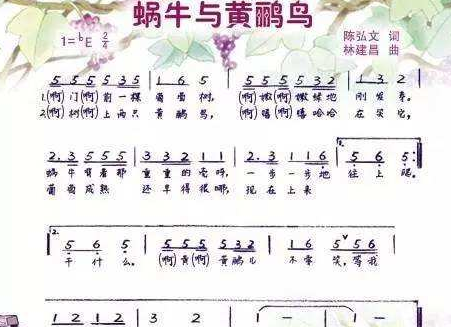 蜗牛与黄鹂鸟
1=♭E 2/4
陈弘文 词
林建昌 曲
5 5 5 5 3 5 | 1 6 5 | 5 5 5 5 3 2 | 1 3 2 |
1.(啊)门(啊)前一棵 葡萄树, (啊)嫩(啊)嫩绿地 刚发芽。
2.(啊)树(啊)上两只 黄鹂鸟, (啊)嘻(啊)嘻哈哈 在笑它,
2. 3 5 5 5 | 3 3 2 1 1 | 2. 3 1 1 6 | 1. 5 6 5 :|
蜗牛背着那 重重的壳呀, 一步一步地 往上爬。
葡萄成熟 还早得很哪, 现在上来
2. 5 6 5 | 5 5 5 5 3 2 | 1 6 5 ˅ 5 6 |
干什么。 (啊)黄(啊)黄鹂儿 不要笑,等我
1 2 1 2 | 3 2 | 1 - | 1 - |